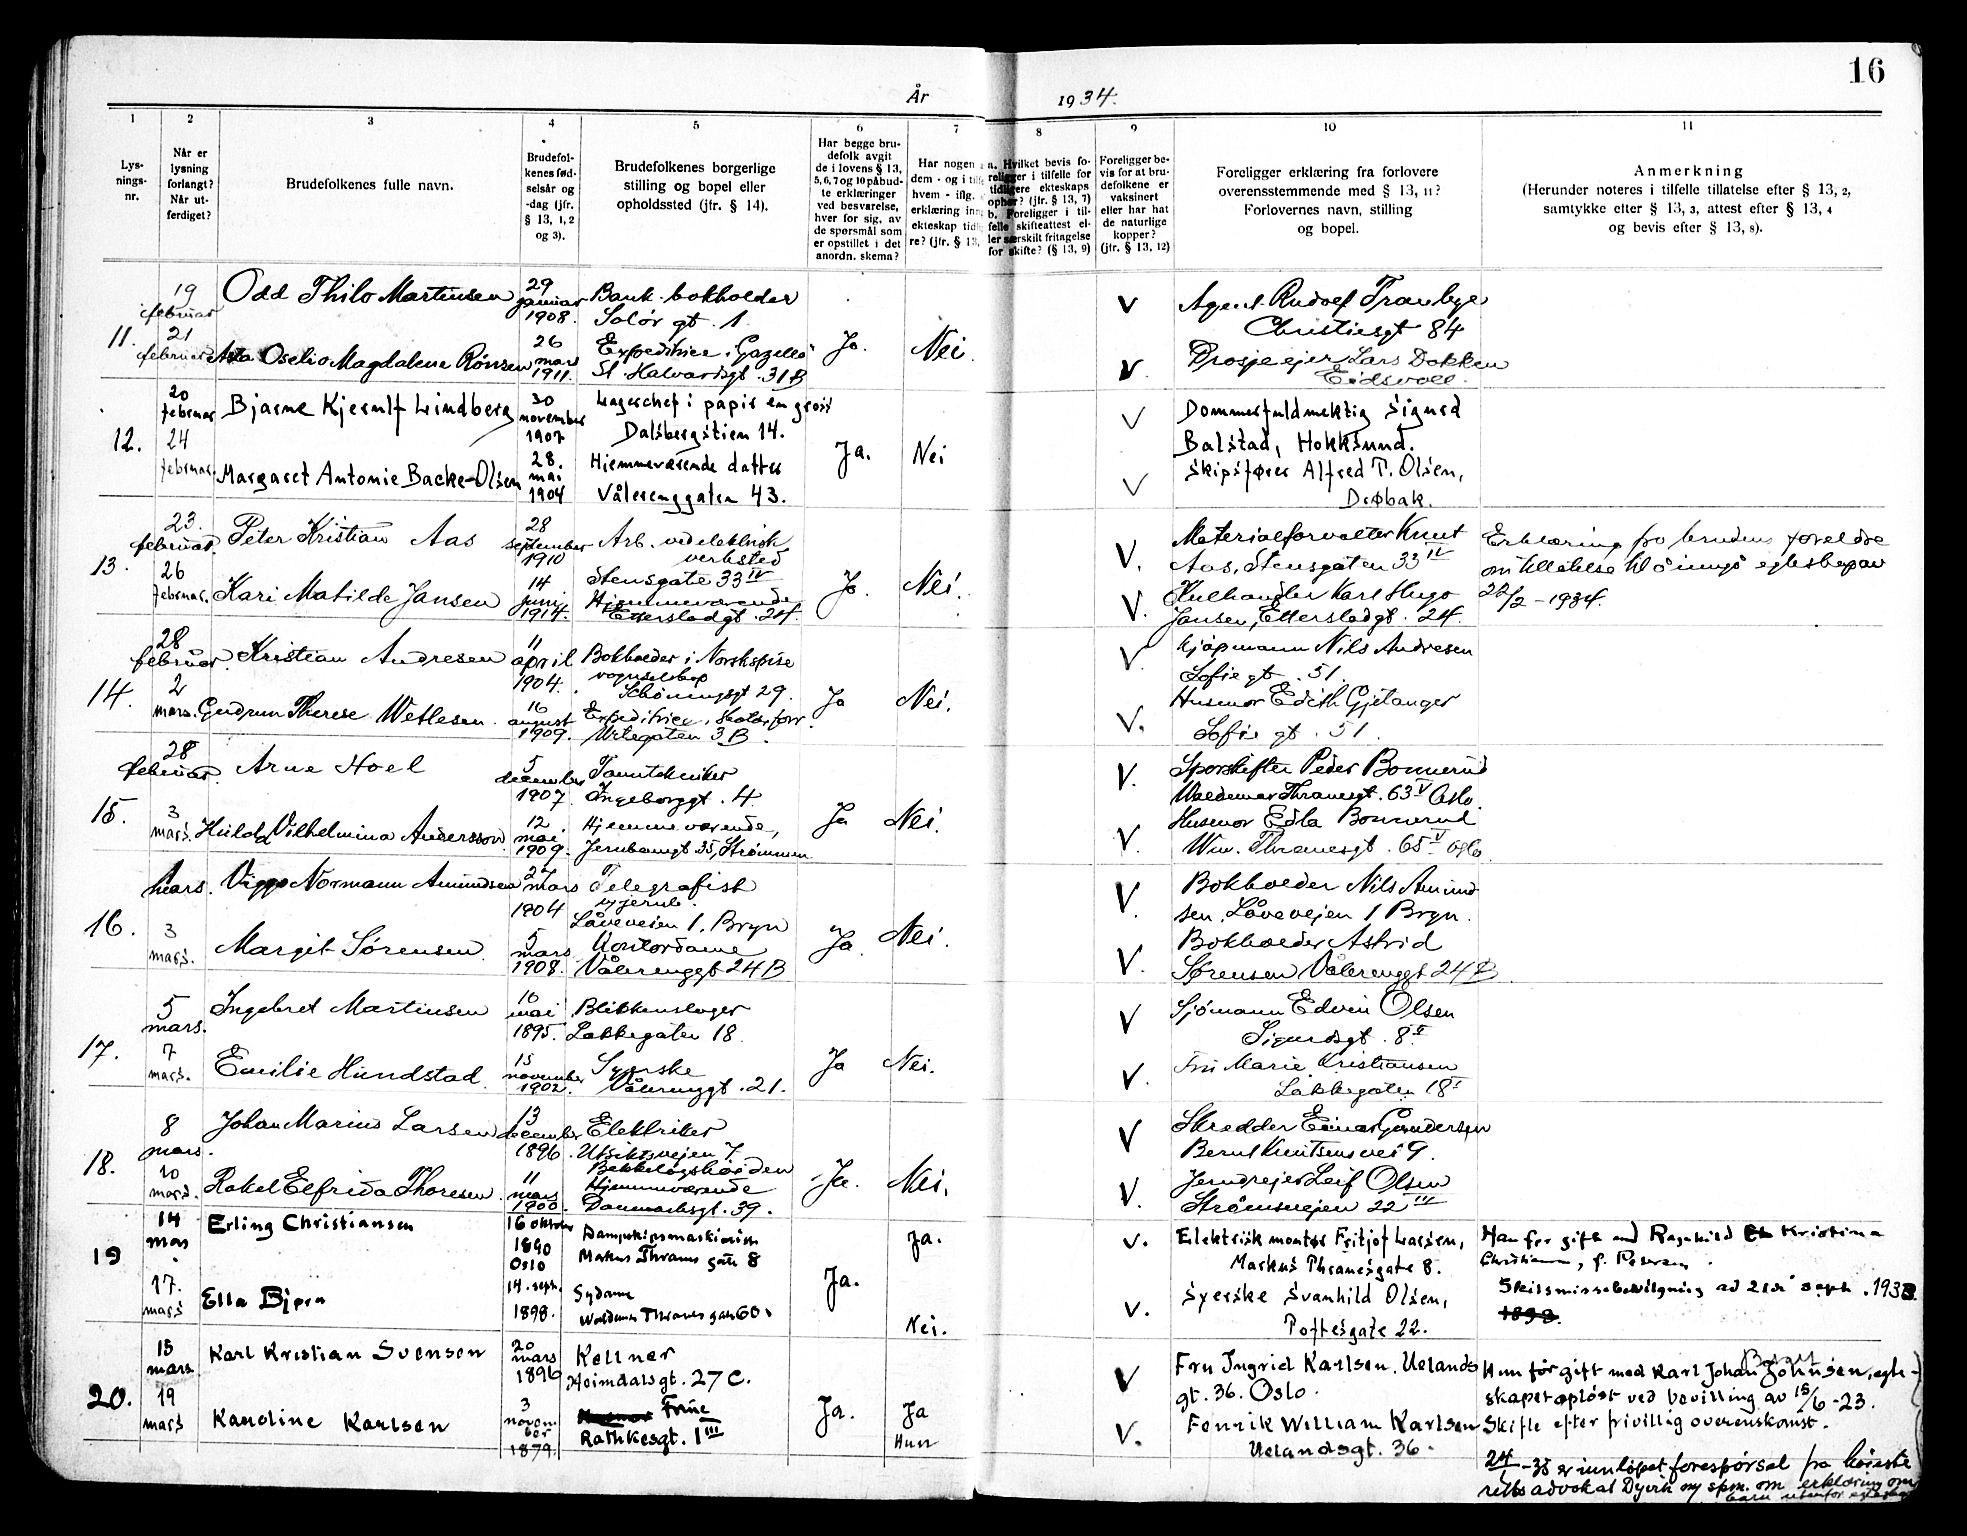 16
År 1934.
1 2 3 4 5 6 7 8 9 10 11
Lys-
nings-
nr.
Når er
lysning
forlangt?
Når ut-
ferdiget?
Brudefolkenes fulle navn.
Brudefol-
kenes fød-
selsår og
-dag (jfr.
§ 13, 1, 2
og 3).
Brudefolkenes borgerlige
stilling og bopel eller
opholdssted (jfr. § 14).
Har begge bru-
defolk avgit
de i lovens § 13,
5, 6, 7 og 10 påbud-
te erklæringer
ved besvarelse,
hver for sig, av
de spørsmål som
er opstillet i det
anordn. skema?
Har nogen a
dem - og i tilf
hvem - iflg.
erklæring inn
ekteskap tidl
re? (jfr. § 13,
a. Hvilket bevis fo-
religger i tilfelle for
tidligere ekteskaps
ophør? (jfr. § 13, 7)
b. Foreligger i til-
felle skifteattest el-
ler særskilt fritagelse
for skifte? (§ 13, 9)
Foreligger be-
vis for at bru-
defolkene er
vaksinert
eller har hat
de naturlige
kopper?
(jfr. § 13, 12)
Foreligger erklæring fra forlovere
overensstemmende med § 13, 11?
Forlovernes navn, stilling
og bopel.
Anmerkning
(Herunder noteres i tilfelle tillatelse efter § 13, 2,
samtykke efter § 13, 3, attest efter § 13, 4
og bevis efter § 13, 8).
11.
19 februar
21 februar
Odd Thilo Martinsen
29 januar 1908.
Bank-bokholder
Solør gt. 1
Asta Oselio Magdalene Rønsen
26 mars 1911.
St. Halvardsgt. 31B
Ja. Nei.
V
V
Agent Rudolf Tranbye
Christiesgt 84
Lars Dokken
Eidsvoll.
12.
20 februar
24 februar.
Bjarne Kjerulf Lindberg
30 november 1907
Lagerchef i papir en gross
Dalsbergstien 14.
Margaret Antonie Backe-Olsen
28. mai 1904
Hjemmeværende datter
Vålerenggaten 43.
Ja. Nei
V
V
Dommerfuldmektig Sigurd
Balstad, Hokksund.
Skipsfører Alfred T. Olsen,
Drøbak.
13.
23. februar.
26 februar.
Peter Kristian Aas
28 september 1910
Arb. ved elektrisk
verksted
Stensgate 33 IV
Kari Matilde Jansen
14 juni 1914.
Hjemmeværende
Etterstadgt. 24.
Ja. Nei.
V.
V.
Materialforvalter Knut
Aas, Stensgaten 33 IV
Kulhandler Karl Hugo
Jansen, Etterstadgt. 24.
Erklæring fra brudens foreldre
om tillatelse til å inngå egteskap av
22/2 - 1934.
14.
28 februar.
2 mars.
Kristian Andresen
11 april 1904.
Bokholder i Norsk spise
vognselskap
Schøningsgt 29.
Gudrun Therese Wetlesen.
16 august 1909.
Urtegaten 3B.
Ja Nei.
V
V.
Kjøpmann Nils Andresen
Sofie gt. 51.
Husmor Edith Gjetanger
Sofie gt. 51.
15.
28 februar.
3 mars.
Arne Hoel
5 december 1907
Tanntekniker
Ingeborggt. 4
Hulda Vilhelmina Andersson
12. mai 1909.
Hjemmeværende,
Jernbanegt 35, Strømmen
Ja Nei.
V.
V.
Peder Bonnerud
Waldemar Thranesgt. 63 V Oslo.
Husmor Edla Bonnerud
Wm. Thranesgt. 65 V Oslo
16.
1 mars.
3 mars.
Viggo Normann Amundsen
27 mars 1904
Telegrafist
v/jernb.
Låveveien 1, Bryn
Margit Sørensen.
5 mars 1908.
Kontordame
Vålerenggt 24B
Ja Nei.
V.
V.
Bokholder Nils Amund
sen, Låveveien 1 Bryn.
Bokholder Astrid
Sørensen Vålerenggt 24B
17.
5 mars.
7 mars.
Ingebret Martinsen
16 mai 1895.
Blikkenslager
Lakkegaten 18
Emilie Hundstad.
15 november 1902.
Syerske
Vålerenggt. 21.
Ja Nei.
V
V.
Sjømann Edvin Olsen
Sigurdsgt. 8 II
Fru Marie Kristiansen
Lakkegaten 18 I
18.
8 mars.
10 mars.
Johan Marius Larsen
13 december 1896.
Elektriker
Utsiktsveien 7
Bekkelagshøiden
Rakel Elfrida Thoresen.
11 mars 1900.
Hjemmeværende
Danmarksgt. 39.
Ja. Nei.
V
V.
Skredder Einar Gundersen
Bernt Knutsens vei 9.
Leif Olsen
Strømsveien 22 III
19
14 mars
17. mars
Erling Christiansen
16 oktober 1890 Oslo
Dampskipsmaskinist
Markus Thranes gate 8
Ella Bjørn
14. sept. 1898.
Sydame
Waldemar Thranes gate 60.
Ja.
Ja.
Nei.
V.
V.
Elektrisk montør Fritjof Larsen,
Markus Thranesgate 8.
Syerske Svanhild Olsen,
Toftesgate 22.
Han før gift med Ragnhild Kristina
Christiansen, f. Petersen.
Skilsmissebevilgning av 21de sept. 1933.
20.
15 mars.
19 mars
Karl Kristian Svensen
20 mars 1896
Kellner
Heimdalsgt. 27 C.
Karoline Karlsen
3 novem-
ber 1879.
Frue
Rathkesgt. 1 III
Ja.
Ja
Hun
V
V.
Fru Ingrid Karlsen. Uelands
gt. 36. Oslo.
Fenrik William Karlsen
Uelandsgt. 36.
Hun før gift med Karl Johan Berger Johnsen, egte-
skapet opløst ved bevilling av 15/6 - 23.
Skifte efter frivillig overenskomst.
24/1 - 35 er innløpet forespørsel fra høieste
retts advokat Dyvik om erklæring om
barn utenfor